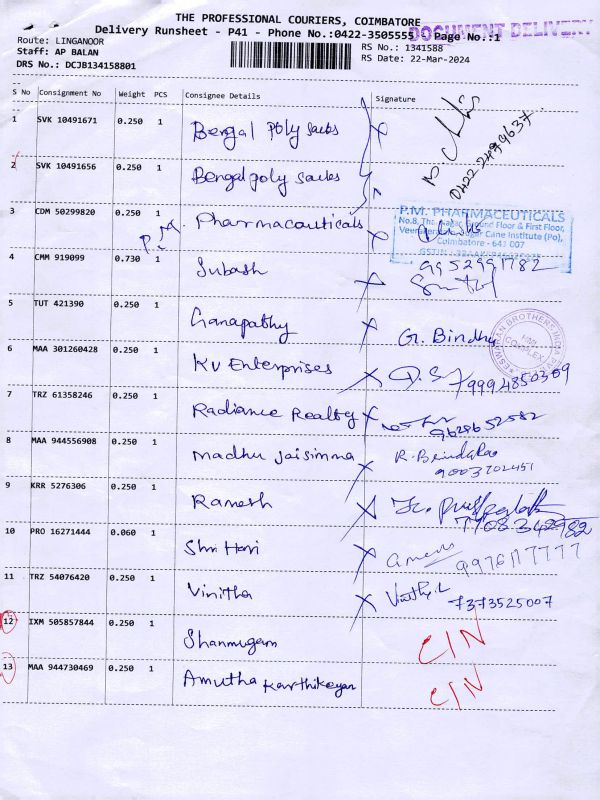 THE PROFESSIONAL COURIERS, COIMBATORE
DOCUMENT DELIVERY
Delivery Runsheet - P41 - Phone No.:0422-3505555 Page No.:1
Route: LINGANOOR
RS No.: 1341588
Staff: AP BALAN
RS Date: 22-Mar-2024
DRS No.: DCJB134158801
S No Consignment No Weight PCS Consignee Details Signature
1 SVK 10491671 0.250 1 Bengal Poly Sacks
0422-2499637
2 SVK 10491656 0.250 1 Bengal poly Sacks
3 CDM 50299820 0.250 1 P.M. Pharmacauticals
P.M. PHARMACEUTICALS
Ground Floor & First Floor,
Cane Institute (Po),
Coimbatore - 641 007
4 CMM 919099 0.730 1 Subash 9952991782
5 TUT 421390 0.250 1 Ganapathy G. Bindhu
6 MAA 301260428 0.250 1 KV Enterprises 9994850309
7 TRZ 61358246 0.250 1 Radiance Realty 9628652582
8 MAA 944556908 0.250 1 Madhu Jaisimma R. Brinda Rao
9003702451
9 KRR 5276306 0.250 1 Ramesh
7708342982
10 PRO 16271444 0.060 1 Shri Hari 9976117777
11 TRZ 54076420 0.250 1 Vinitha 7373525007
12 IXM 505857844 0.250 1 Shanmugam C/N
13 MAA 944730469 0.250 1 Amutha Karthikeyan C/N